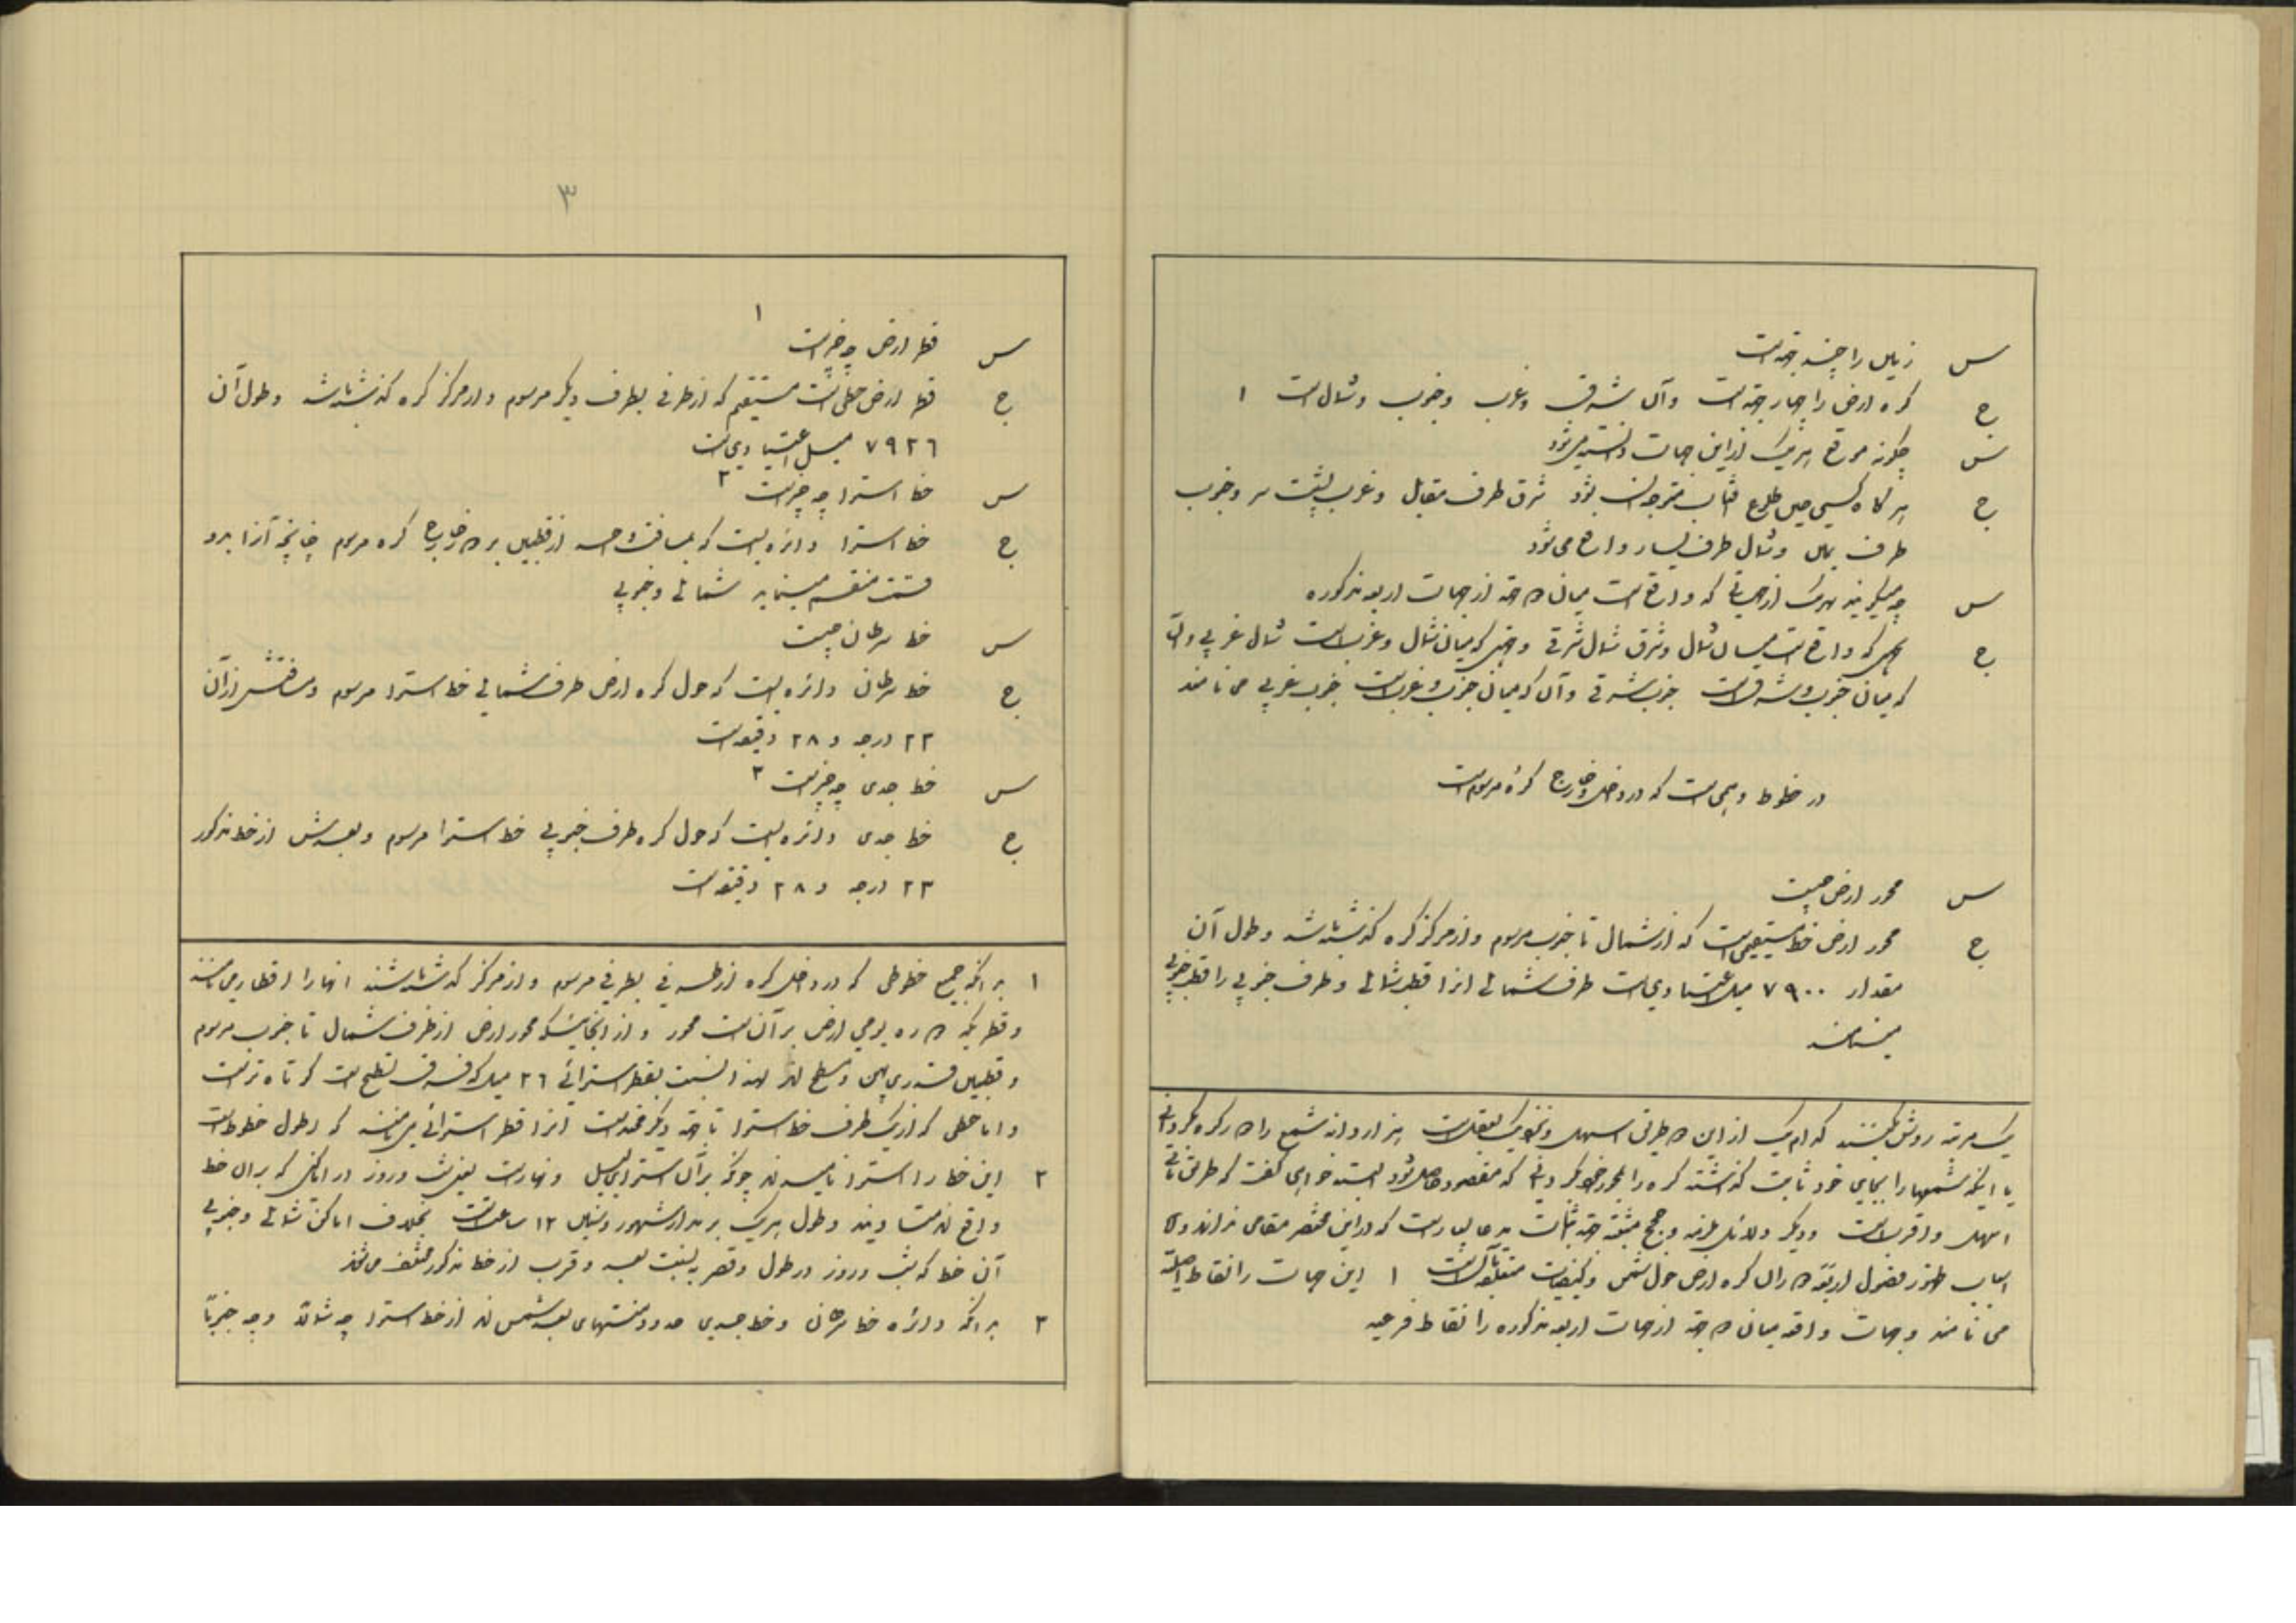 س زمین را چند جهة است
ج کره ارض را چهار جهة است و آن شرق و غرب و جنوب و شمال است ۱
س چگونه موقع هر یک از این جهات دانسته میشود
ج هر گاه کسی حین طلوع آفتاب متوجه آن بشود شرق طرف مقابل و غرب پشت سر و جنوب
طرف یمین و شمال طرف یسار واقع می شود
س چه میگویند هر یک از جهاتی که واقع است میان دو جهة از جهات اربعه مذکوره
ج جهتی که واقع است میان شمال و شرق شمال شرقی و جهتی که میان شمال و غرب است شمال غربی و آن
که میان جنوب و شرق است جنوب شرقی و آن که میان جنوب و غرب است جنوب غربی می نامند
در خطوط وهمی است که در داخل و خارج کره مرسوم است
س محور ارض چیست
ج محور ارض خط مستقیمی است که از شمال تا جنوب مرسوم و از مرکز کره گذشته باشد و طول آن
مقدار ۷۹۰۰ میل اعتیادی است طرف شمالی انرا قطب شمالی و طرف جنوبی را قطب جنوبی
مینامند
یک مرتبه روشن کنند کدام یک از این دو طریق اسهل و نزدیک بعقل است هزار دانه شمع را دور کره گردانی
یا اینکه شمعها را بجای خود ثابت گذاشته کره را بمحور خود گردانی که مقصود حاصل شود البته خواهی گفت که طریق ثانی
اسهل و اقرب است و دیگر دلائل ملزمه و حجج مثبته جهة اثبات مدعا بسیار است که در این مختصر مقامی ندارند
اسباب ظهور فصول اربعه دوران کره ارض حول شمس و کیفیات متعلقه بآن است ۱ این جهات را نقاط اصلیة
می نامند و جهات واقعه میان دو جهة از جهات اربعه مذکوره را نقاط فرعیه
۳
س قطر ارض چه چیز است ۱
ج قطر ارض خطی است مستقیم که از طرفی بطرف دیگر مرسوم و از مرکز کره گذشته باشد و طول آن
۷۹۲۶ میل اعتیادی است
س خط استوا چه چیز است ۲
ج خط استوا دائره ایست که بمسافت واحده از قطبین بر دور خارج کره مرسوم چنانچه آنرا بدو
قسمت منقسم مینماید شمالی و جنوبی
س خط سرطان چیست
ج خط سرطان دائره ایست که حول کره ارض طرف شمالی خط استوا مرسوم و مسافتش از آن
۲۳ درجه و ۲۸ دقیقه است
س خط جدی چه چیز است ۳
ج خط جدی دائره ایست که حول کره طرف جنوبی خط استوا مرسوم و بعدش از خط مذکور
۲۳ درجه و ۲۸ دقیقه است
۱ بدانکه جمیع خطوطی که در داخل کره از طرفی بطرفی مرسوم و از مرکز گذشته باشند انها را اقطار می نامند
و قطریکه دوره یومی ارض بر آن است محور و از انجائیکه محور ارض از طرف شمال تا جنوب مرسوم
و قطبین قدری پهن و مسطح اند لهذا نسبت بقطر استوائی ۲۶ میل که فرق تسطیح است کوتاه تر است
و اما خطی که از یک طرف خط استوا تا جهة دیگر ممتد است انرا قطر استوائی می نامند که اطول خطوط است
۲ این خط را استوا نامیده اند چونکه بر آن استوای لیل و نهار است یعنی شب و روز در اماکنی که بر ان خط
واقع اند متساویند و طول هریک بر مدار شهور و سنین ۱۲ ساعت است بخلاف اماکن شمالی و جنوبی
آن خط که شب و روز در طول و قصر به نسبت بعد و قرب از خط مذکور مختلف می شوند
۳ بدانکه دائره خط سرطان و خط جدی حدود منتهای بعد شمس اند از خط استوا چه شمالا و چه جنوبا